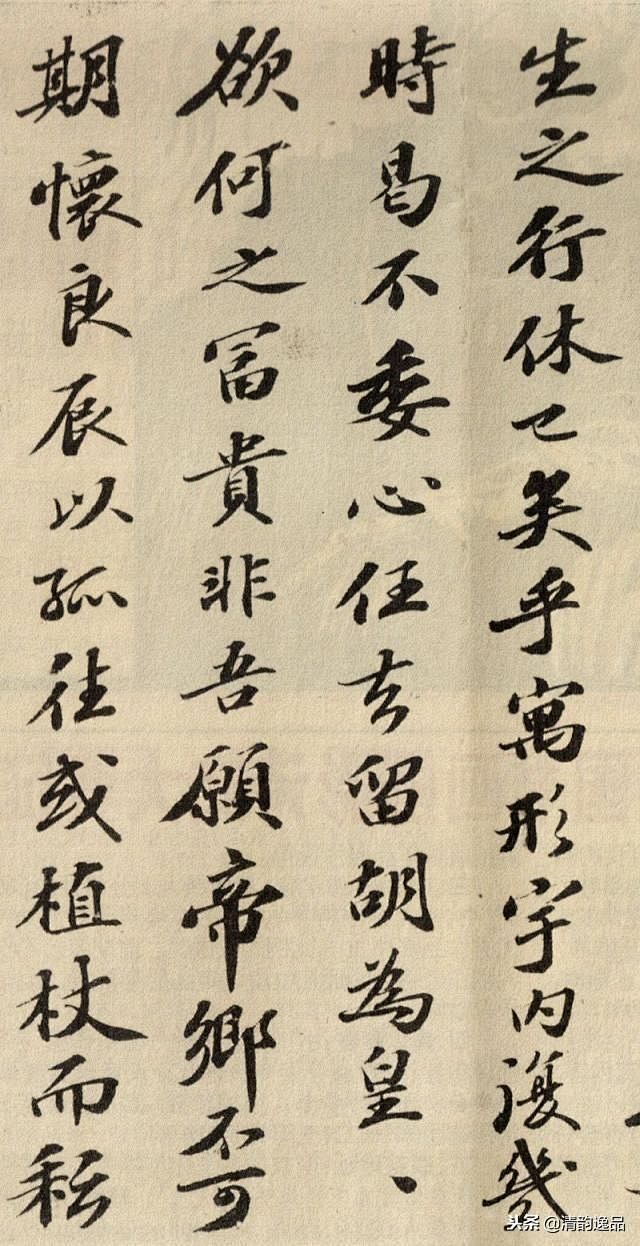 生之行休已矣乎寓形宇内復幾
時曷不委心任去留胡為皇、
欲何之富貴非吾願帝鄉不可
期懷良辰以孤往或植杖而耘
头条@清韵逸品